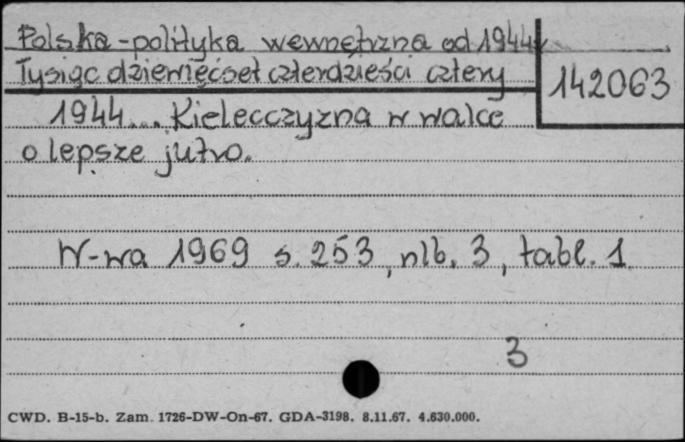 Polska - polityka wewnętrzna od 1944
Tysiąc dziewięćset czterdzieści cztery
142063
1944... Kielecczyzna w walce
o lepsze jutro.
W-wa 1969 s. 253, nlb. 3, tabl. 1
3
CWD. B-15-b. Zam. 1726-DW-On-67. GDA-3198. 8.11.67. 4.630.000.